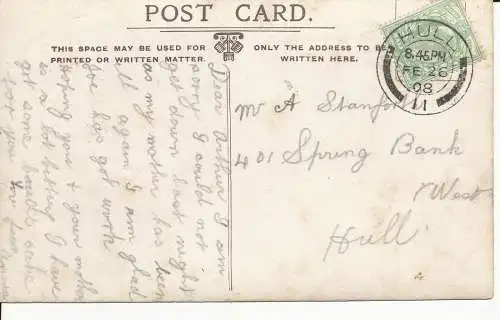 POST CARD.
THIS SPACE MAY BE USED FOR
PRINTED OR WRITTEN MATTER.
ONLY THE ADDRESS TO BE
WRITTEN HERE.
HULL
8.45PM
FE 26
08
11
Dear Arthur I am
sorry I could not
get down last night
as my mother has been
ill again I am glad
Joe has got work
hoping you & your mother
is a lot better I have
got some beads
for you
Mr A Stanford
401 Spring Bank
West
Hull